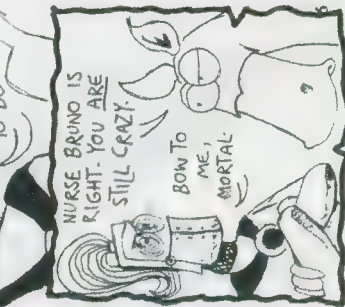 NURSE BRUNO IS
RIGHT. YOU ARE
STILL CRAZY.
BOW TO
ME,
MORTAL
6